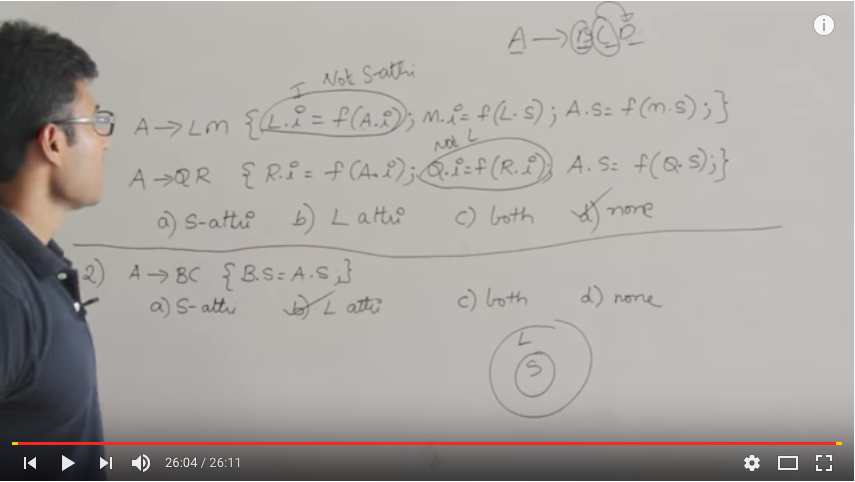 A → BCD
I Not S-attri
A → LM { L.i = f(A.i); M.i = f(L.S); A.S = f(M.S); }
Not L
A → QR { R.i = f(A.i); Q.i = f(R.i); A.S = f(Q.S); }
a) S-attri b) L attri c) both d) none
2) A → BC { B.S = A.S; }
a) S-attri b) L attri c) both d) none
L
S
26:04 / 26:11